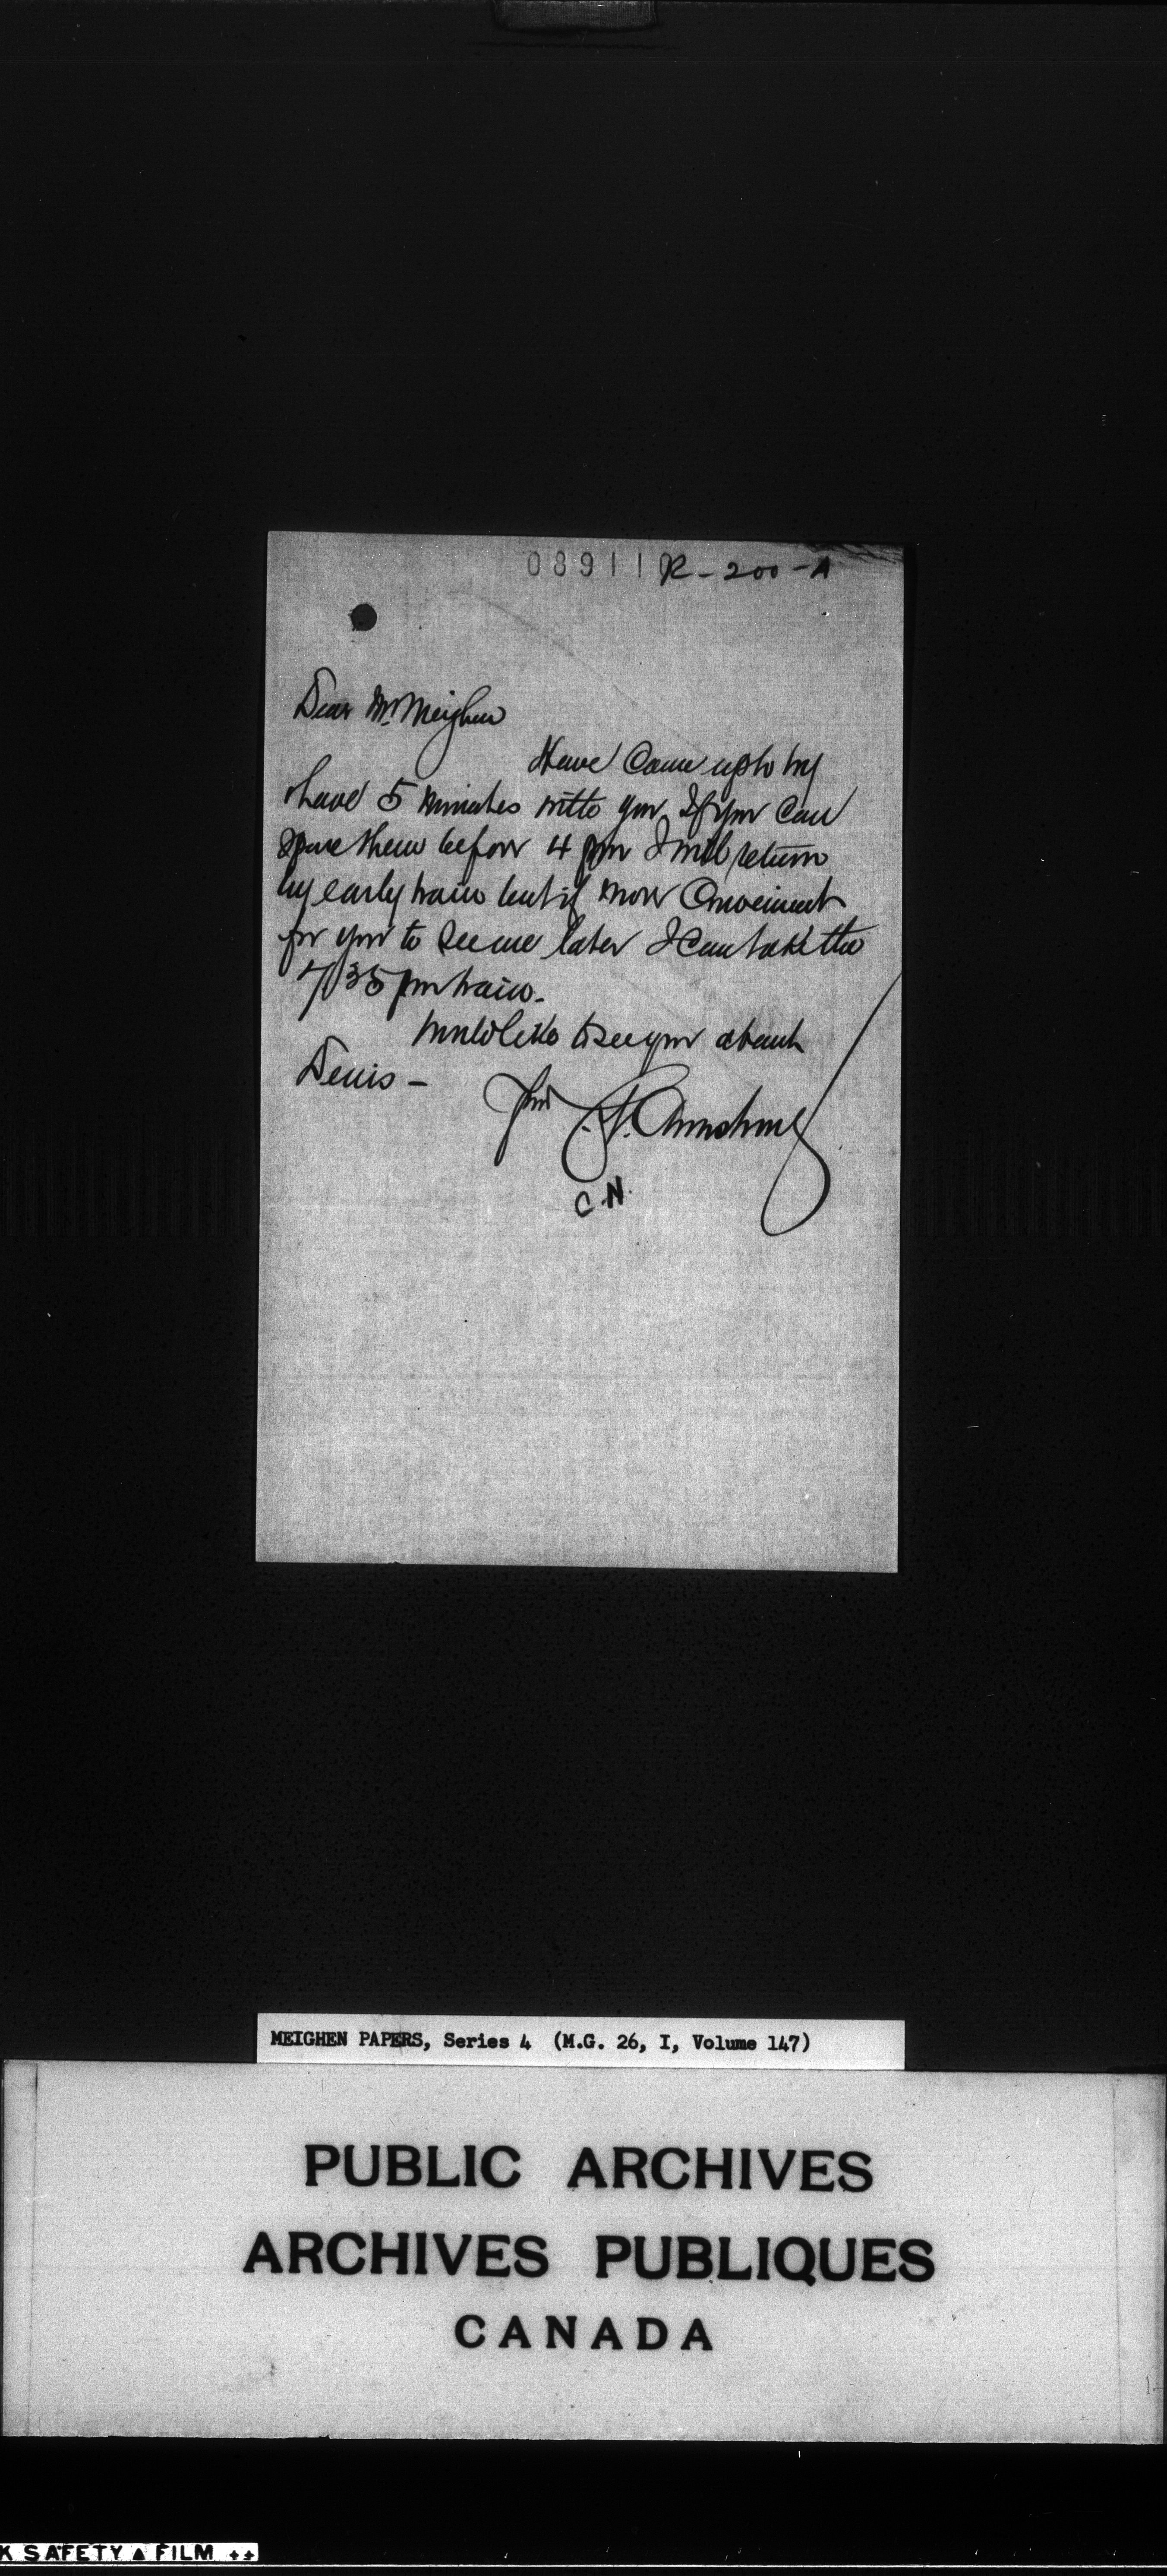 089110
R-200-A
Dear Mr. Meighen
Have Come up to try
have 5 minutes with you. If you Can
spare them before 4 pm I will return
by early train but if more Convenient
for you to see me later I Can take the
7/35 pm train.
Would like to see you about
Denis -
J. A. Armstrong
C.N.
MEIGHEN PAPERS, Series 4 (M.G. 26, I, Volume 147)
PUBLIC ARCHIVES
ARCHIVES PUBLIQUES
CANADA
K SAFETY ▲ FILM ++